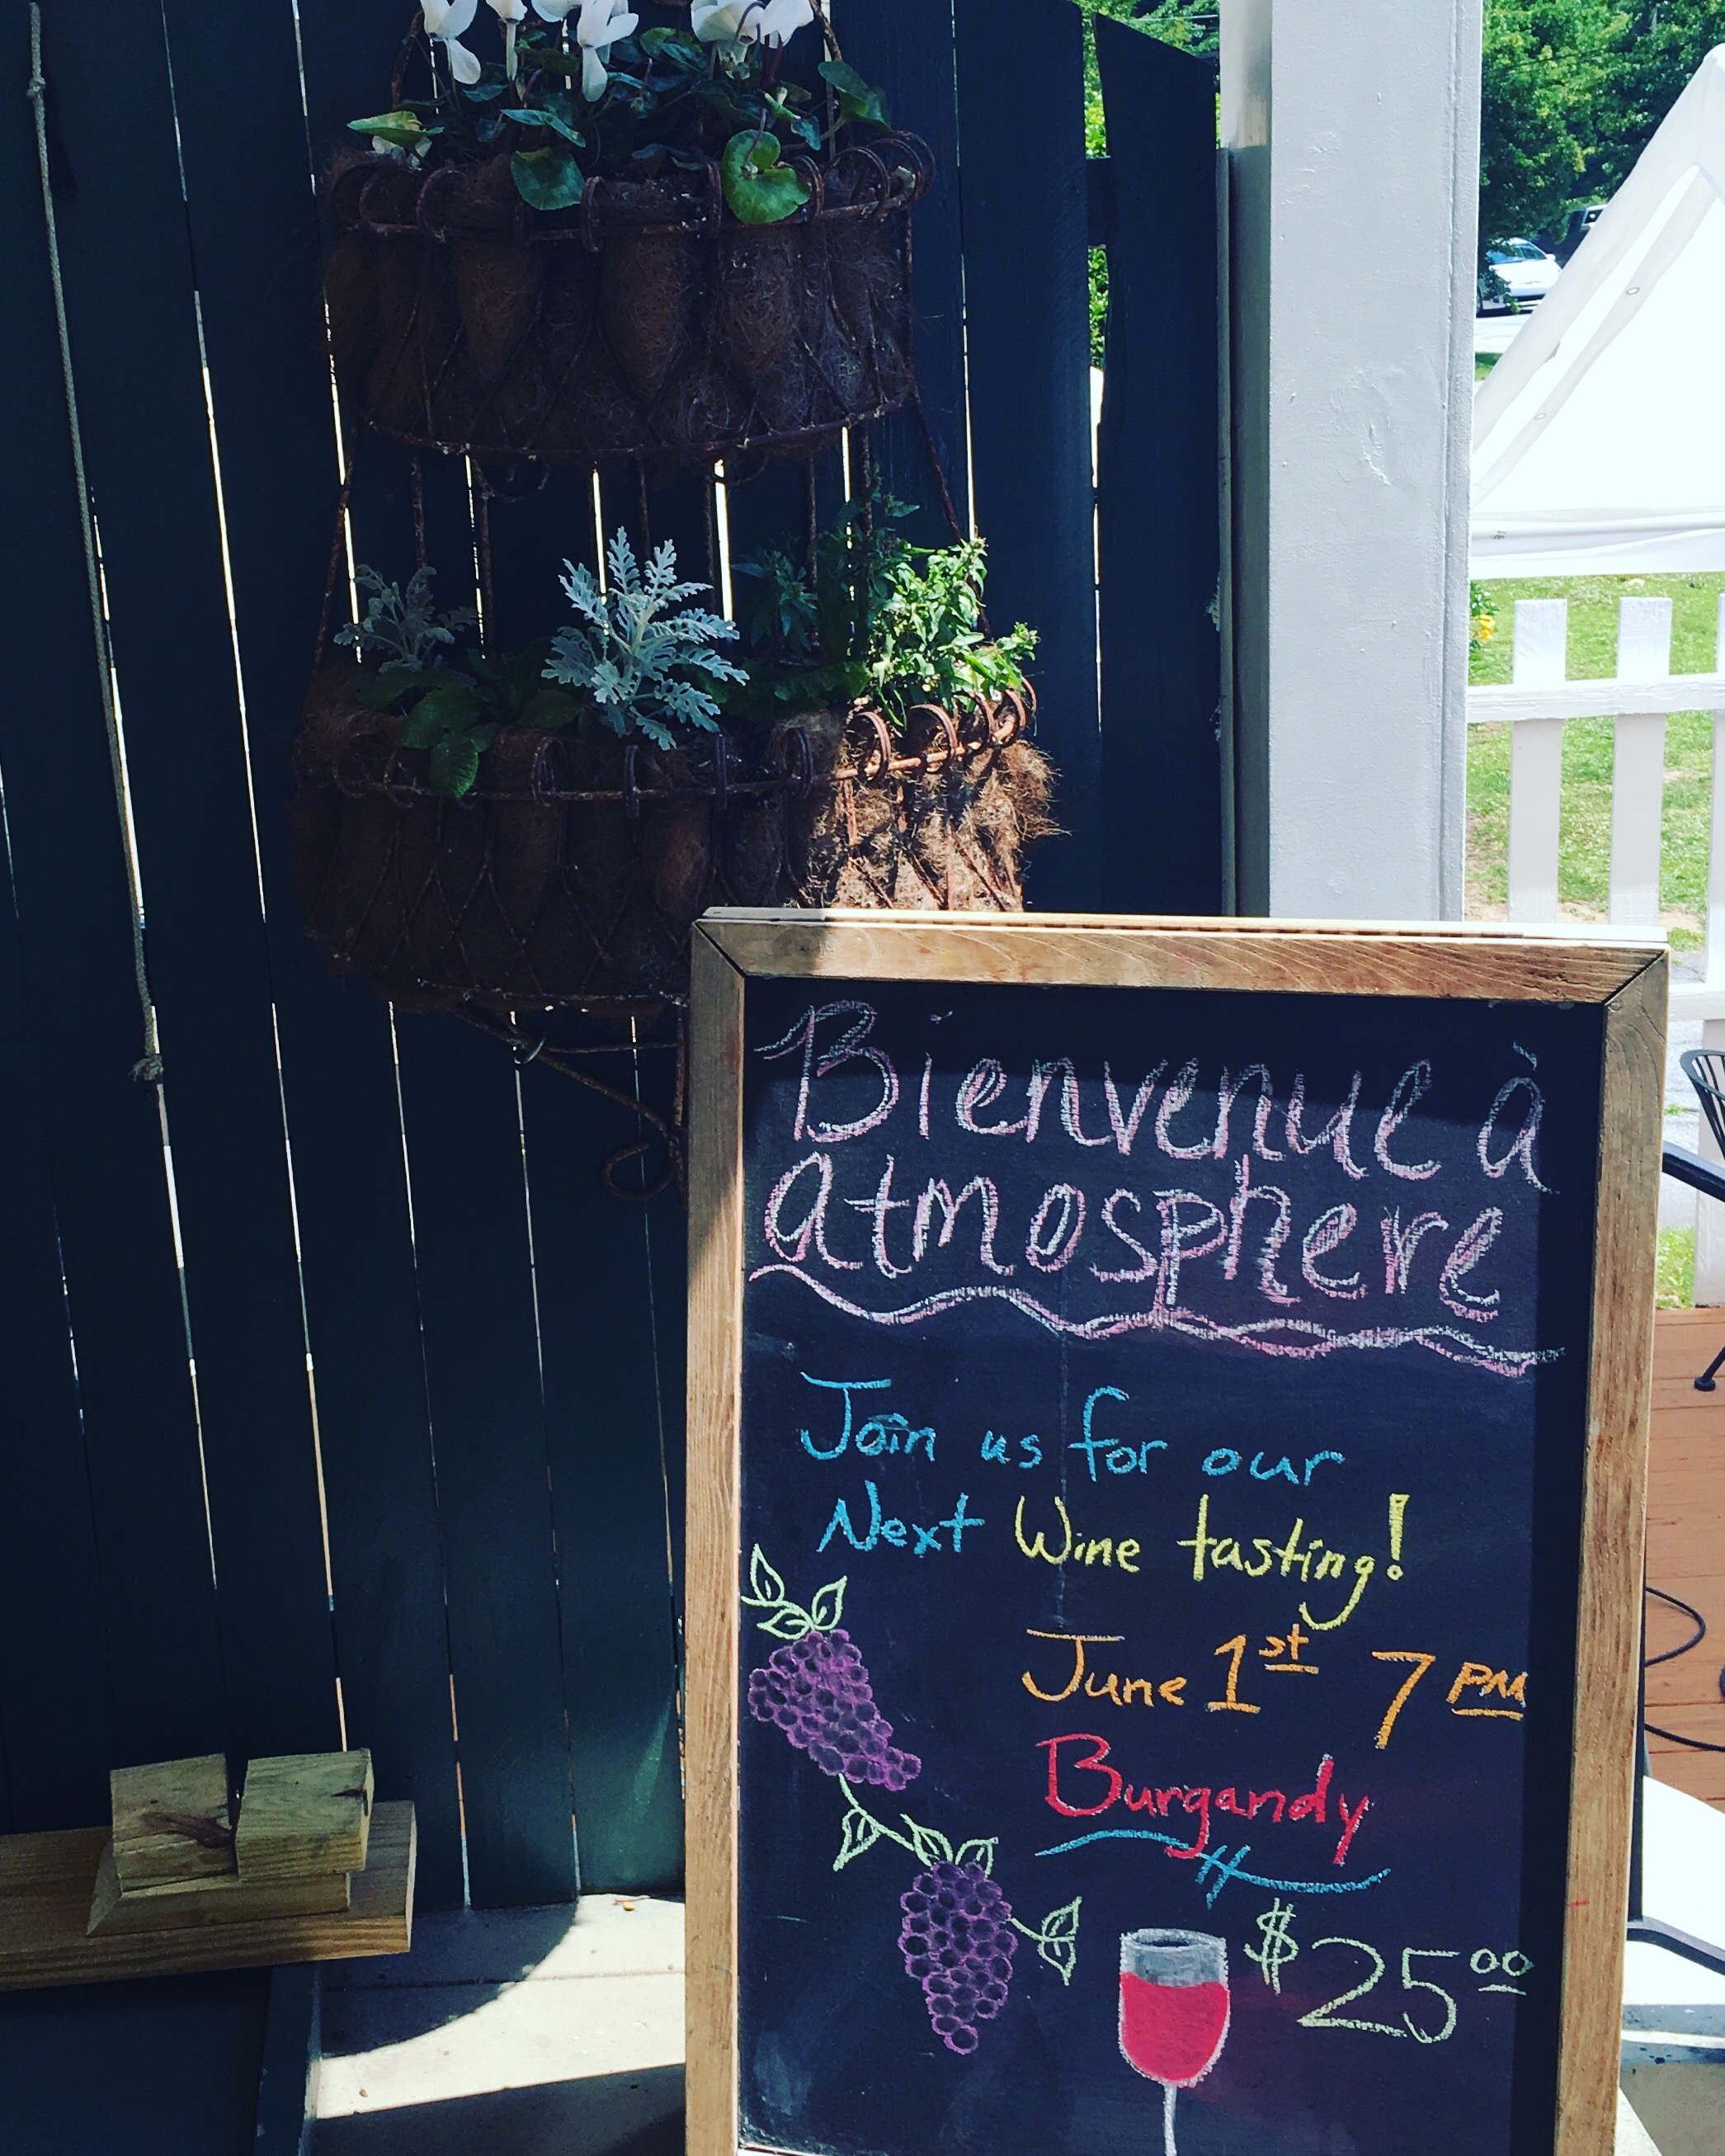 Bienvenue à
atmosphere
Join us for our
Next Wine tasting!
June 1st 7 PM
Burgandy
$25.00